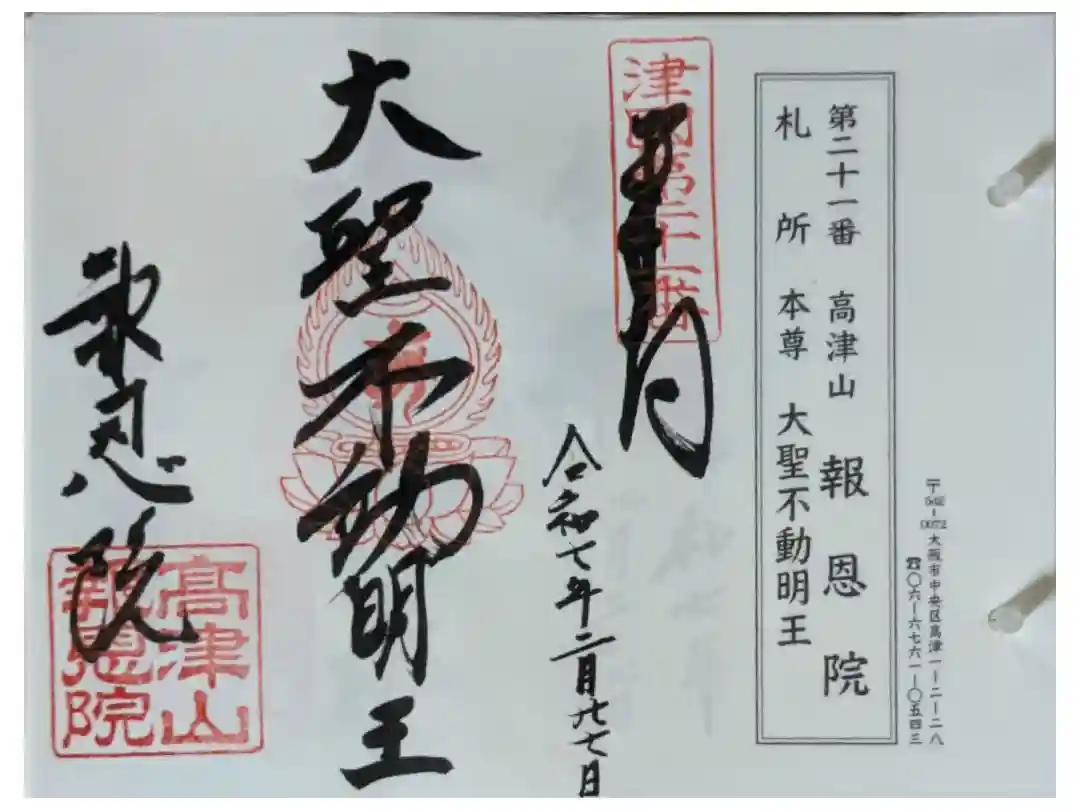 〒542-0072 大阪市中央区高津一ー二ー二八
☎〇六ー六七六一ー〇五四三
第二十一番 高津山 報恩院
札所本尊 大聖不動明王
津國第二十一番
令和七年二月廿七日
大聖不動明王
報恩院
高津山
報恩院